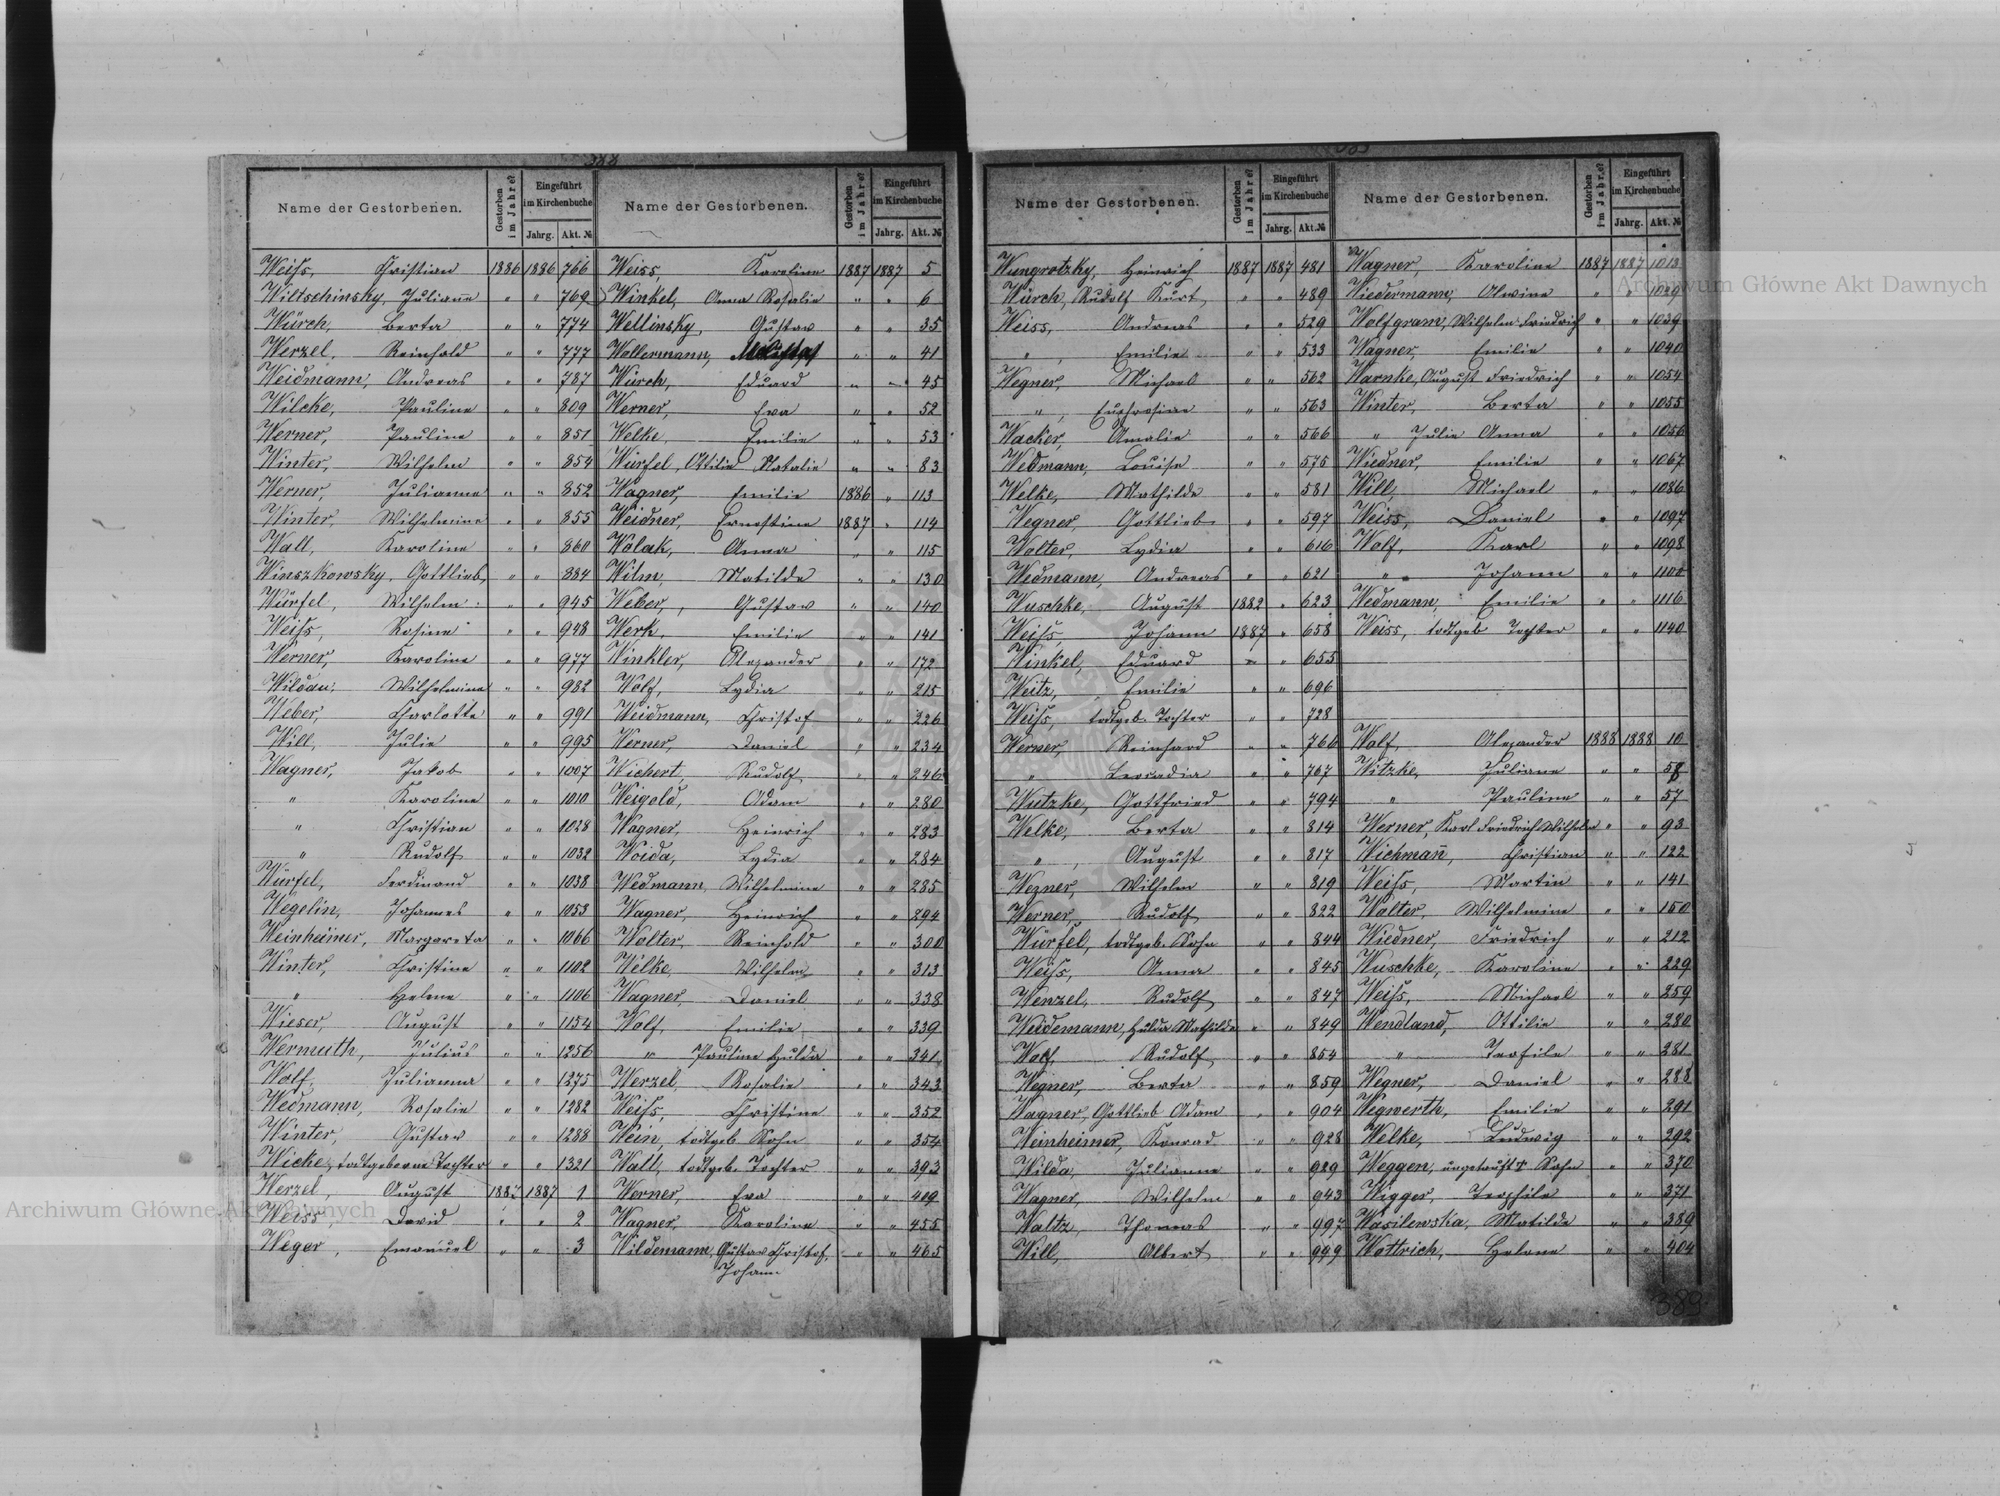 388
Name der Gestorbenen. Gestorben im Jahre? Eingeführt im Kirchenbuche Jahrg. Akt. №
Weiſs, Christian 1886 1886 766
Wiltschinsky, Juliane " " 769
Würch, Berta " " 774
Werzel, Reinhold " " 777
Weidmann, Andreas " " 787
Wilcke, Pauline " " 809
Werner, Pauline " " 851
Winter, Wilhelm " " 854
Werner, Julianna " " 852
Winter, Wilhelmine " " 855
Wall, Karoline " " 860
Winszkowsky, Gottlieb " " 884
Würfel, Wilhelm " " 945
Weiſs, Rosine " " 948
Werner, Karoline " " 977
Wildau, Wilhelmine " " 982
Weber, Charlotte " " 991
Will, Julie " " 995
Wagner, Jakob " " 1007
" Karoline " " 1010
" Christian " " 1028
" Rudolf " " 1032
Würfel, Ferdinand " " 1038
Wegelin, Johannes " " 1053
Weinheimer, Margareta " " 1066
Winter, Christine " " 1102
" Helene " " 1106
Wieser, August " " 1154
Wermuth, Julius " " 1256
Wolf, Julianna " " 1275
Wedmann, Rosalie " " 1282
Winter, Gustav " " 1288
Wicke, todtgeborne Tochter " " 1321
Werzel, August 1887 1
Weiss, David " " 2
Weger, Emanuel " " 3
Name der Gestorbenen. Gestorben im Jahre? Eingeführt im Kirchenbuche Jahrg. Akt. №
Weiss, Karoline 1887 1887 5
Winkel, Anna Rosalie " " 6
Wellinsky, Gustav " " 35
Wollermann, " " 41
Würch, Eduard " " 45
Werner, Eva " " 52
Welke, Emilie " " 53
Würfel, Ottilie Natalie " " 83
Wagner, Emilie 1886 " 113
Weidner, Ernestine 1887 " 114
Wolak, Anna " " 115
Wilm, Matilde " " 130
Weber, Gustav " " 140
Werk, Emilie " " 141
Winkler, Alexander " " 172
Wolf, Lydia " " 215
Weidmann, Christof " " 226
Werner, Daniel " " 234
Wichert, Rudolf " " 246
Weigold, Adam " " 280
Wagner, Heinrich " " 283
Woida, Lydia " " 284
Wedmann, Wilhelmine " " 285
Wagner, Heinrich " " 294
Wolter, Reinhold " " 300
Welke, Wilhelm " " 313
Wagner, Daniel " " 338
Wolf, Emilie " " 339
" Pauline Hulda " " 341
Werzel, Rosalie " " 343
Weiſs, Christine " " 352
Wein, todtgeb. Sohn " " 354
Wall, todtgeb. Tochter " " 393
Werner, Eva " " 419
Wagner, Karoline " " 455
Wildemann, Gustav Christof, " " 465
Johann
Name der Gestorbenen. Gestorben im Jahre? Eingeführt im Kirchenbuche Jahrg. Akt. №
Wungrotzky, Heinrich 1887 1887 481
Würch, Rudolf Kurt " " 489
Weiss, Andreas " " 529
" , Emilie " " 533
Wegner, Michael " " 562
" , Euphrosine " " 563
Wacker, Amalie " " 566
Wedmann, Louise " " 575
Welke, Mathilde " " 581
Wegner, Gottlieb " " 597
Wolter, Lydia " " 616
Wedmann, Andreas " " 621
Wuschke, August 1882 " 623
Weiſs, Johann 1887 " 658
Winkel, Eduard " " 655
Weitz, Emilie " " 696
Weiſs, todtgeb. Tochter " " 728
Werner, Reinhard " " 766
" Leocadia " " 767
Wutzke, Gottfried " " 794
Welke, Berta " " 814
" , August " " 817
Wezner, Wilhelm " " 819
Werner, Rudolf " " 822
Würfel, todtgeb. Sohn " " 844
Weiſs, Anna " " 845
Wenzel, Rudolf " " 847
Weidemann, Hulda Mathilde " " 849
Wolf, Rudolf " " 854
Wegner, Berta " " 859
Wagner, Gottlieb Adam " " 904
Weinheimer, Konrad " " 928
Wilda, Julianne " " 929
Wagner, Wilhelm " " 943
Waltz, Thomas " " 997
Will, Albert " " 999
Name der Gestorbenen. Gestorben im Jahre? Eingeführt im Kirchenbuche Jahrg. Akt. №
Wagner, Karoline 1887 1887 1013
Wiedermann, Alwine " " 1029
Wolfgram, Wilhelm Friedrich " " 1039
Wagner, Emilie " " 1040
Warnke, August Friedrich " " 1054
Winter, Berta " " 1055
" Julie Anna " " 1056
Wiedner, Emilie " " 1067
Will, Michael " " 1086
Weiss, Daniel " " 1097
Wolf, Karl " " 1098
" Johann " " 1100
Wedmann, Emilie " " 1116
Weiss, todtgeb Tochter " " 1140
Wolf, Alexander 1888 1888 10
Witzke, Juliane " "
" Pauline " " 57
Werner, Karl Friedrich Wilhelm " " 93
Wichmañ, Christian " " 122
Weiſs, Martin " " 141
Walter, Wilhelmine " " 150
Wiedner, Friedrich " " 212
Wuschke, Karoline " " 229
Weiſs, Michael " " 259
Wendland, Ottilie " " 280
" Teofile " " 281
Wegner, Daniel " " 288
Wegwerth, Emilie " " 291
Welke, Ludwig " " 292
Weggen, ungetauft † Sohn " " 370
Wigger, Teophile " " 371
Wasilewska, Matilde " " 389
Wottrich, Helene " " 404
389
Archiwum Główne Akt Dawnych
Archiwum Główne Akt Dawnych